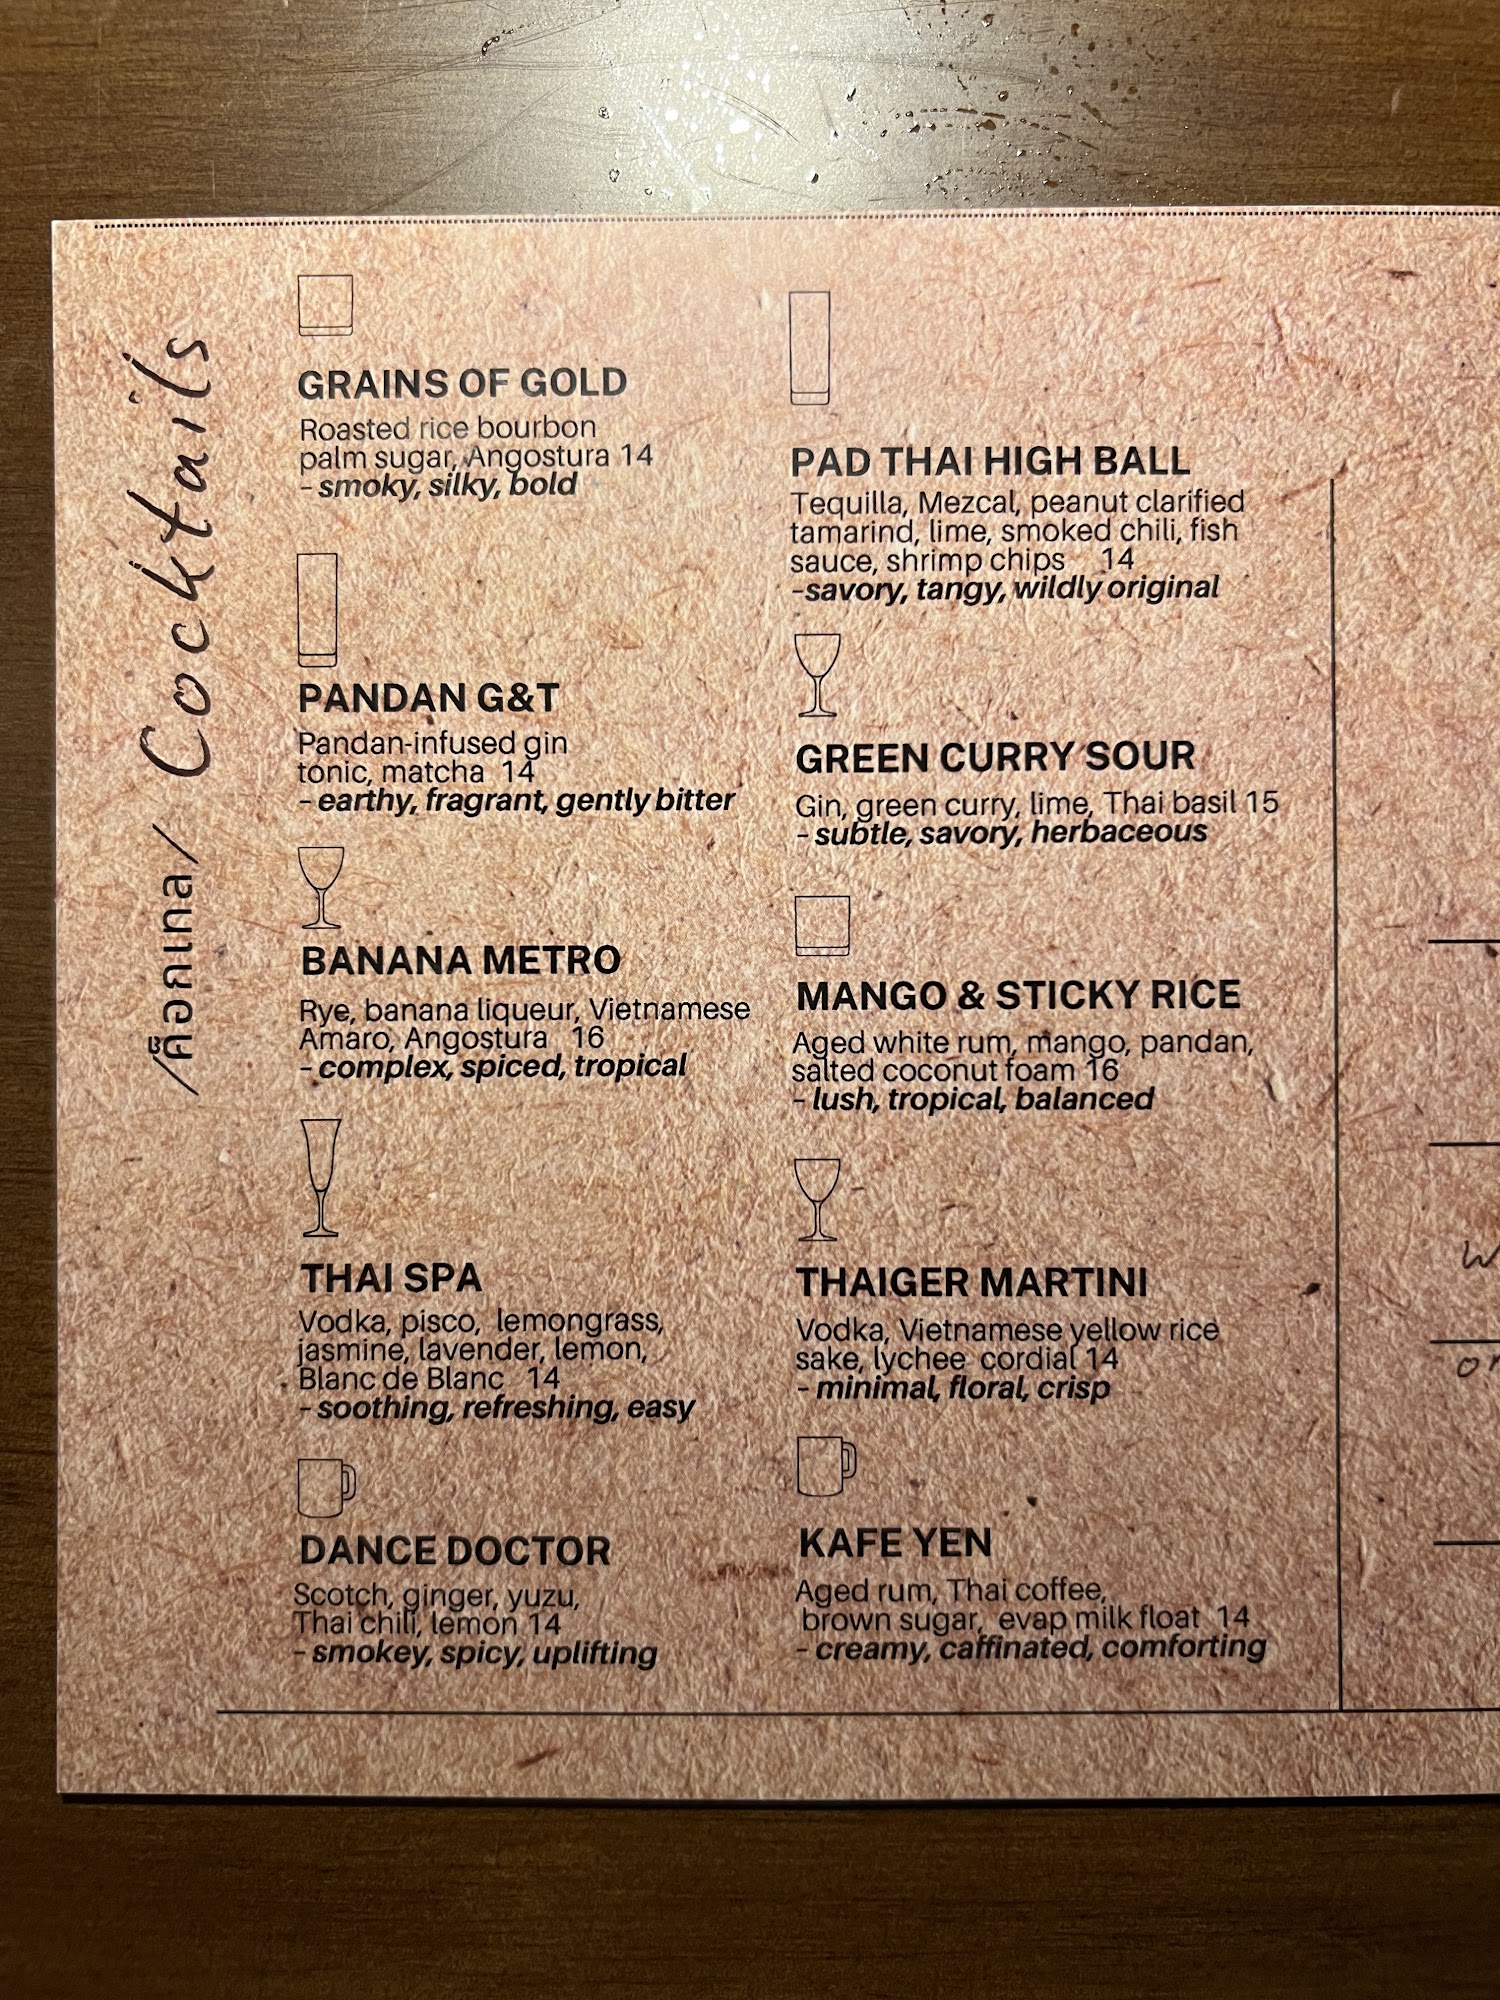 /ค็อกเทล/ Cocktails
GRAINS OF GOLD
Roasted rice bourbon
palm sugar, Angostura 14
- smoky, silky, bold
PANDAN G&T
Pandan-infused gin
tonic, matcha 14
- earthy, fragrant, gently bitter
BANANA METRO
Rye, banana liqueur, Vietnamese
Amaro, Angostura 16
- complex, spiced, tropical
THAI SPA
Vodka, pisco, lemongrass,
jasmine, lavender, lemon,
Blanc de Blanc 14
- soothing, refreshing, easy
DANCE DOCTOR
Scotch, ginger, yuzu,
Thai chili, lemon 14
- smokey, spicy, uplifting
PAD THAI HIGH BALL
Tequilla, Mezcal, peanut clarified
tamarind, lime, smoked chili, fish
sauce, shrimp chips 14
-savory, tangy, wildly original
GREEN CURRY SOUR
Gin, green curry, lime, Thai basil 15
- subtle, savory, herbaceous
MANGO & STICKY RICE
Aged white rum, mango, pandan,
salted coconut foam 16
- lush, tropical, balanced
THAIGER MARTINI
Vodka, Vietnamese yellow rice
sake, lychee cordial 14
- minimal, floral, crisp
KAFE YEN
Aged rum, Thai coffee,
brown sugar, evap milk float 14
- creamy, caffinated, comforting